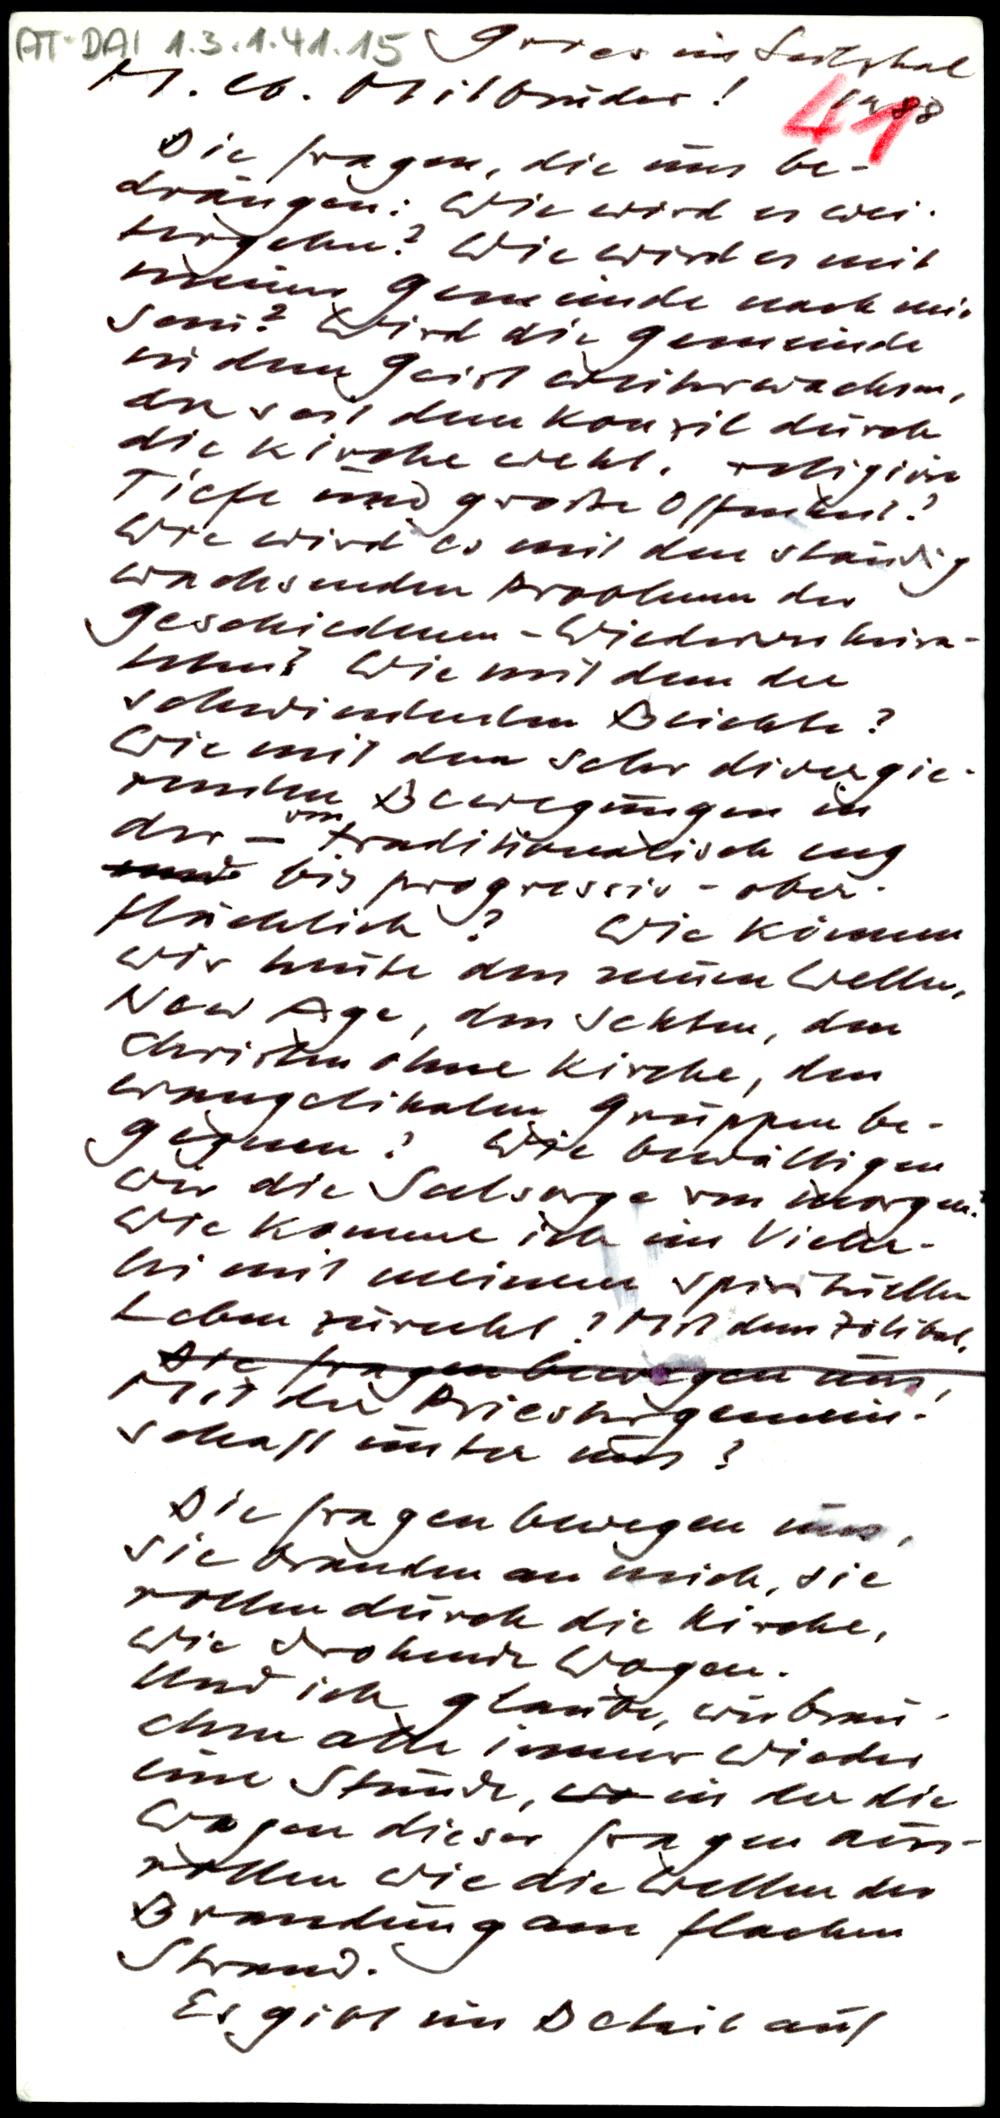 AT-DAI 1.3.1.41.15 Gries im Sellrhal
M. lb. Mitbrüder! 1988
41
Die Fragen, die uns be-
drängen: Wie wird es wei-
tergehn? Wie wird es mit
meiner Gemeinde nach mir
sein? Wird die Gemeinde
in dem Geist weiterwachsen,
der seit dem Konzil durch
die Kirche weht. religiöse
Tiefe und große Offenheit?
Wie wird es mit den ständig
wachsenden Problemen der
Geschiedenen-Wiederverheira-
teten? Wie mit dem der
schwindenden Beichte?
Wie mit den sehr divergie-
renden Bewegungen in
der – von traditionalistisch eng
und bis progressiv-ober-
flächlich? Wie können
wir heute den neuen Wellen,
New Age, den Sekten, den
Christen ohne Kirche, den
evangelikalen Gruppen be-
gegnen? Wie bewältigen
wir die Seelsorge von morgen?
Wie komme ich im Vieler-
lei mit meinem spirituellen
Leben zurecht? Mit dem Zölibat,
Die Fragen bewegen uns,
Mit der Priestergemein-
schaft unter uns?
Die Fragen bewegen uns,
sie branden an mich, sie
rollen durch die Kirche,
wie drohende Wogen.
Und ich glaube, wir brau-
chen alle immer wieder
eine Stunde, wo in der die
Wogen dieser Fragen aus-
rollen wie die Wellen der
Brandung am flachen
Strand.
Es gibt ein Detail auf